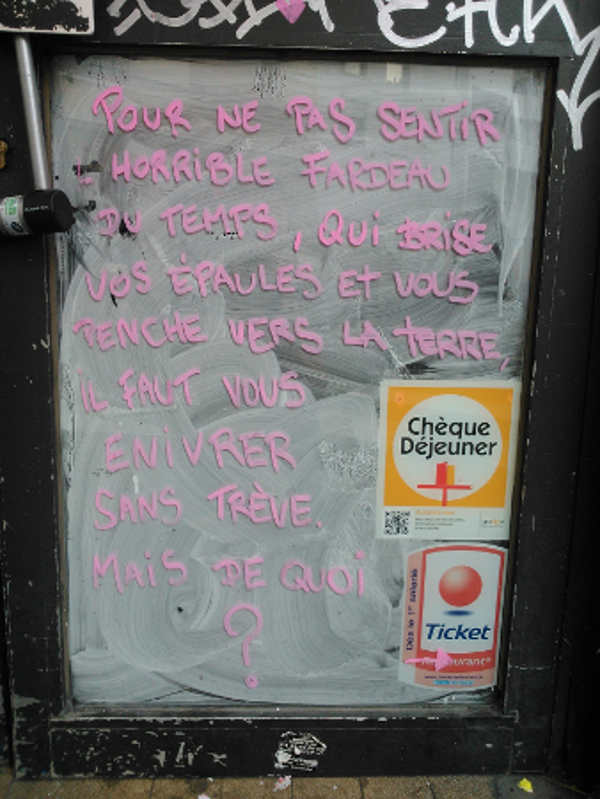 POUR NE PAS SENTIR
L'HORRIBLE FARDEAU
DU TEMPS, QUI BRISE
VOS ÉPAULES ET VOUS
PENCHE VERS LA TERRE,
IL FAUT VOUS
ENIVRER
SANS TRÈVE.
MAIS DE QUOI
?
Chèque
Déjeuner
Dès le 1er
Ticket
Restaurant®